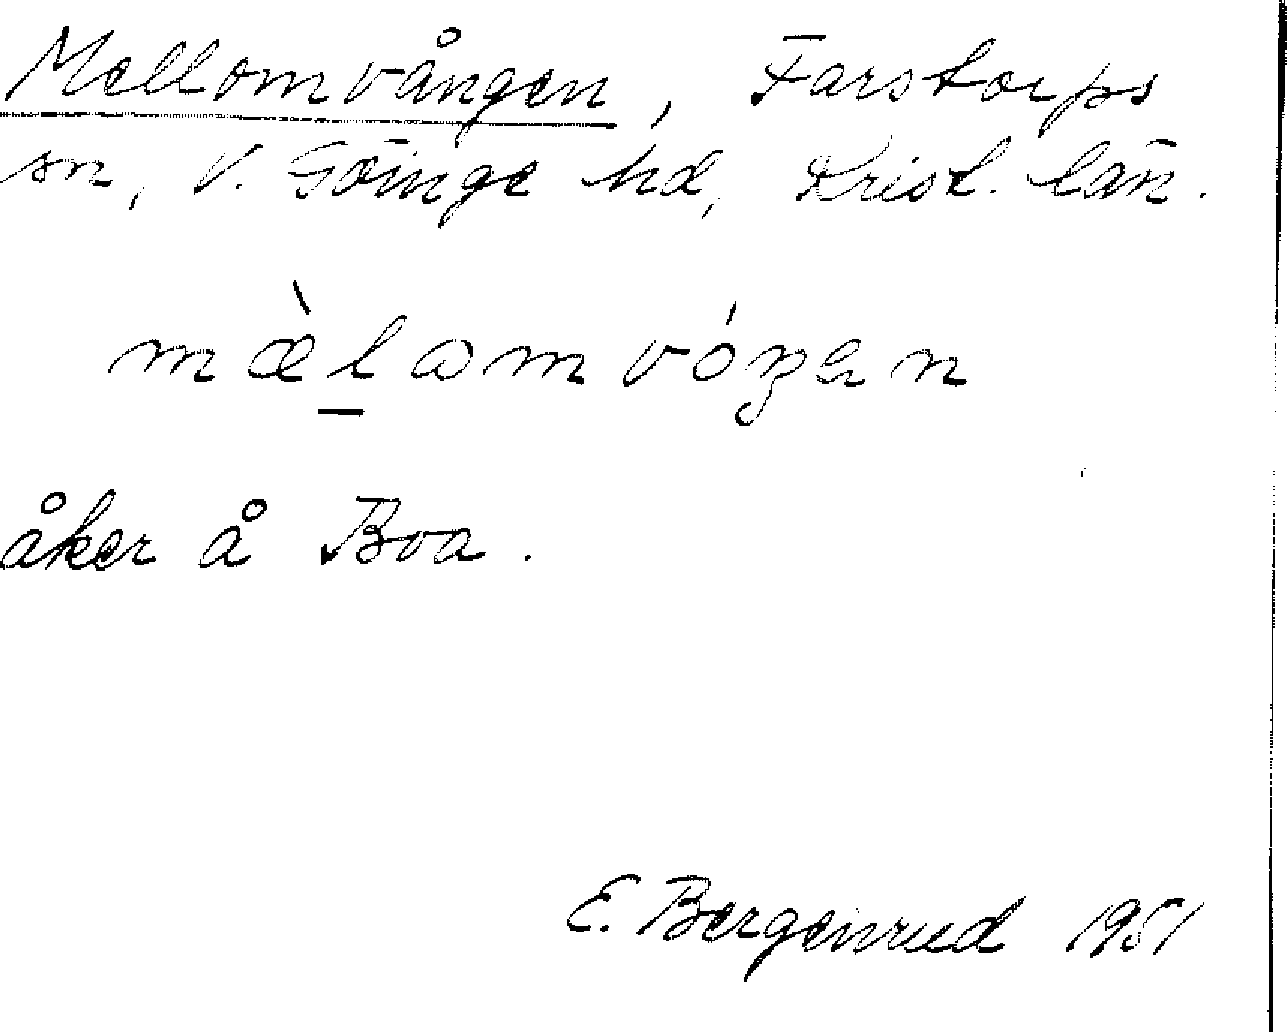 Mellomvången, Farstorps
sn, V. Göinge hd, Krist. län.
mæ̀l̲ɷmvóŋɐn
åker å Boa.
E. Bergenrud 1951